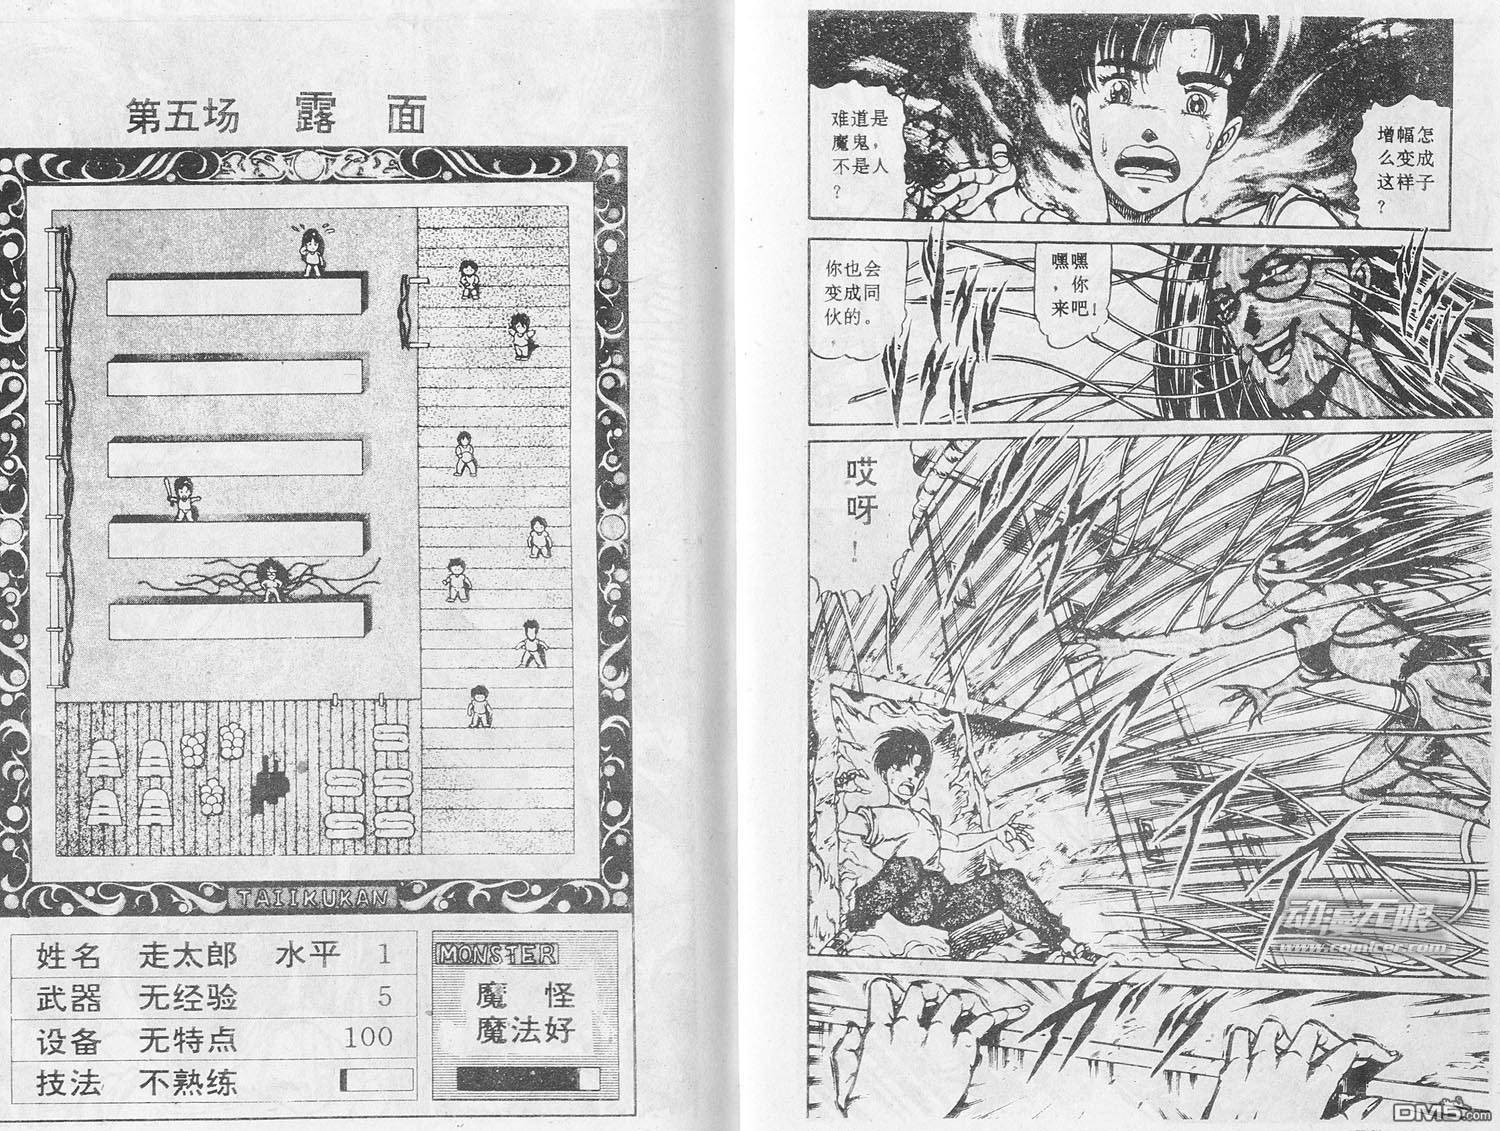 第五场 露 面
TAIIKUKAN
姓名 走太郎 水平 1
武器 无经验 5
设备 无特点 100
技法 不熟练
MONSTER
魔 怪
魔法好
增幅怎
么变成
这样子
？
难道是
魔鬼，
不是人
？
嘿嘿
，你
来吧！
你也会
变成同
伙的。
哎
呀
！
动漫无限
www.comicer.com
DM5.com